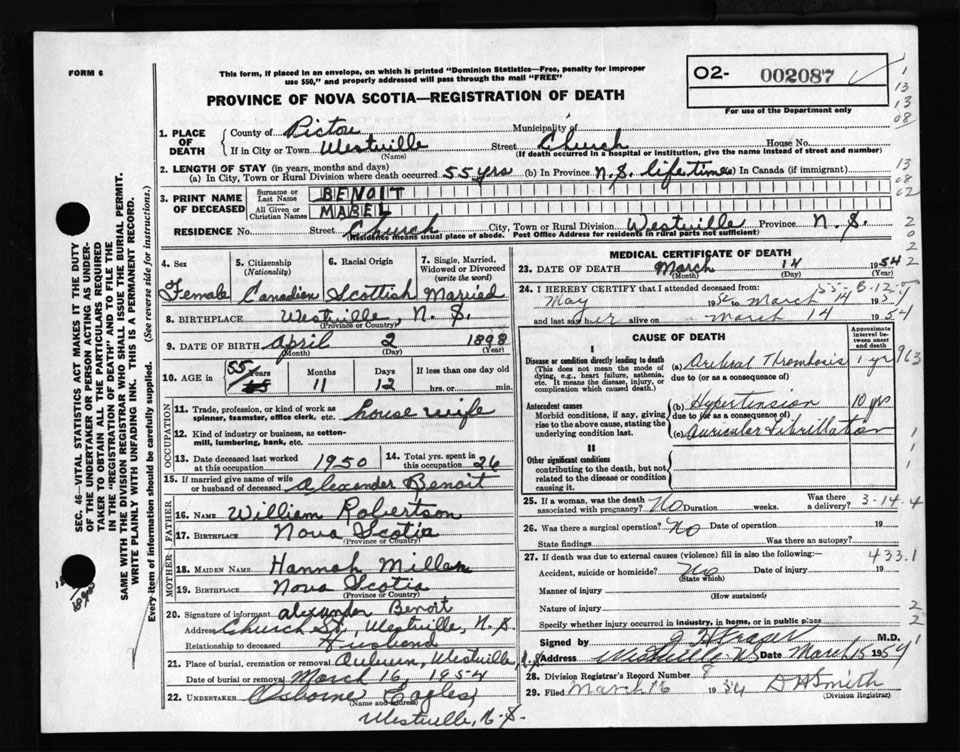 FORM 6
This form, if placed in an envelope, on which is printed "Dominion Statistics—Free, penalty for improper
use $50," and properly addressed will pass through the mail "FREE"
O2- 002087
For use of the Department only
PROVINCE OF NOVA SCOTIA—REGISTRATION OF DEATH
1. PLACE OF DEATH
County of Pictou Municipality of
If in City or Town Westville Street Church House No.
(Name) (If death occurred in a hospital or institution, give the name instead of street and number)
2. LENGTH OF STAY (in years, months and days)
(a) In City, Town or Rural Division where death occurred 55 yrs (b) In Province N.S. lifetime (c) In Canada (if immigrant)
3. PRINT NAME OF DECEASED
Surname or Last Name BENOIT
All Given or Christian Names MABEL
RESIDENCE No. Street Church City, Town or Rural Division Westville Province N.S.
(Residence means usual place of abode. Post Office Address for residents in rural parts not sufficient)
4. Sex Female
5. Citizenship (Nationality) Canadian
6. Racial Origin Scottish
7. Single, Married, Widowed or Divorced (write the word) Married
8. BIRTHPLACE Westville, N.S.
(Province or Country)
9. DATE OF BIRTH April 2 1898
(Month) (Day) (Year)
10. AGE in 55 Years 11 Months 12 Days If less than one day hrs. or min.
OCCUPATION
11. Trade, profession, or kind of work as spinner, teamster, office clerk, etc. house wife
12. Kind of industry or business, as cotton-mill, lumbering, bank, etc.
13. Date deceased last worked at this occupation 1950
14. Total yrs. spent in this occupation 26
15. If married give name of wife or husband of deceased Alexander Benoit
FATHER
16. NAME William Robertson
17. BIRTHPLACE Nova Scotia
(Province or Country)
MOTHER
18. MAIDEN NAME Hannah Millar
19. BIRTHPLACE Nova Scotia
(Province or Country)
20. Signature of informant Alexander Benoit
Address Church St., Westville, N.S.
Relationship to deceased Husband
21. Place of burial, cremation or removal Auburn, Westville, N.S.
Date of burial or removal March 16, 1954
22. UNDERTAKER Osborne Eagles
(Name and Address)
Westville, N.S.
MEDICAL CERTIFICATE OF DEATH
23. DATE OF DEATH March 14 1954
(Month) (Day) (Year)
24. I HEREBY CERTIFY that I attended deceased from:
May 19 to March 14 19
and last saw her alive on March 14 1954
CAUSE OF DEATH
Approximate interval between onset and death
I
Disease or condition directly leading to death
(This does not mean the mode of dying, e.g., heart failure, asthenia, etc. It means the disease, injury, or complication which caused death.)
(a) Cerebral Thrombosis 1 yr
due to (or as a consequence of)
Antecedent causes
Morbid conditions, if any, giving rise to the above cause, stating the underlying condition last.
(b) Hypertension 10 yrs
due to (or as a consequence of)
(c) Auricular Fibrillation
II
Other significant conditions
contributing to the death, but not related to the disease or condition causing it.
25. If a woman, was the death associated with pregnancy? No Duration weeks. Was there a delivery? 3-14-4
26. Was there a surgical operation? No Date of operation 19
State findings Was there an autopsy?
27. If death was due to external causes (violence) fill in also the following:— 433.1
Accident, suicide or homicide? No Date of injury 19
(State which)
Manner of injury
(How sustained)
Nature of injury
Specify whether injury occurred in industry, in home, or in public place
Signed by M.D.
Address Westville NS Date March 15 1954
28. Division Registrar's Record Number 8
29. Filed March 16 1954 D H Smith
(Division Registrar)
SEC. 46—VITAL STATISTICS ACT MAKES IT THE DUTY
OF THE UNDERTAKER OR PERSON ACTING AS UNDER-
TAKER TO OBTAIN ALL THE PARTICULARS REQUIRED
IN THE "REGISTRATION OF DEATH" AND TO FILE THE
SAME WITH THE DIVISION REGISTRAR WHO SHALL ISSUE THE BURIAL PERMIT.
WRITE PLAINLY WITH UNFADING INK. THIS IS A PERMANENT RECORD.
Every item of information should be carefully supplied. (See reverse side for instructions.)